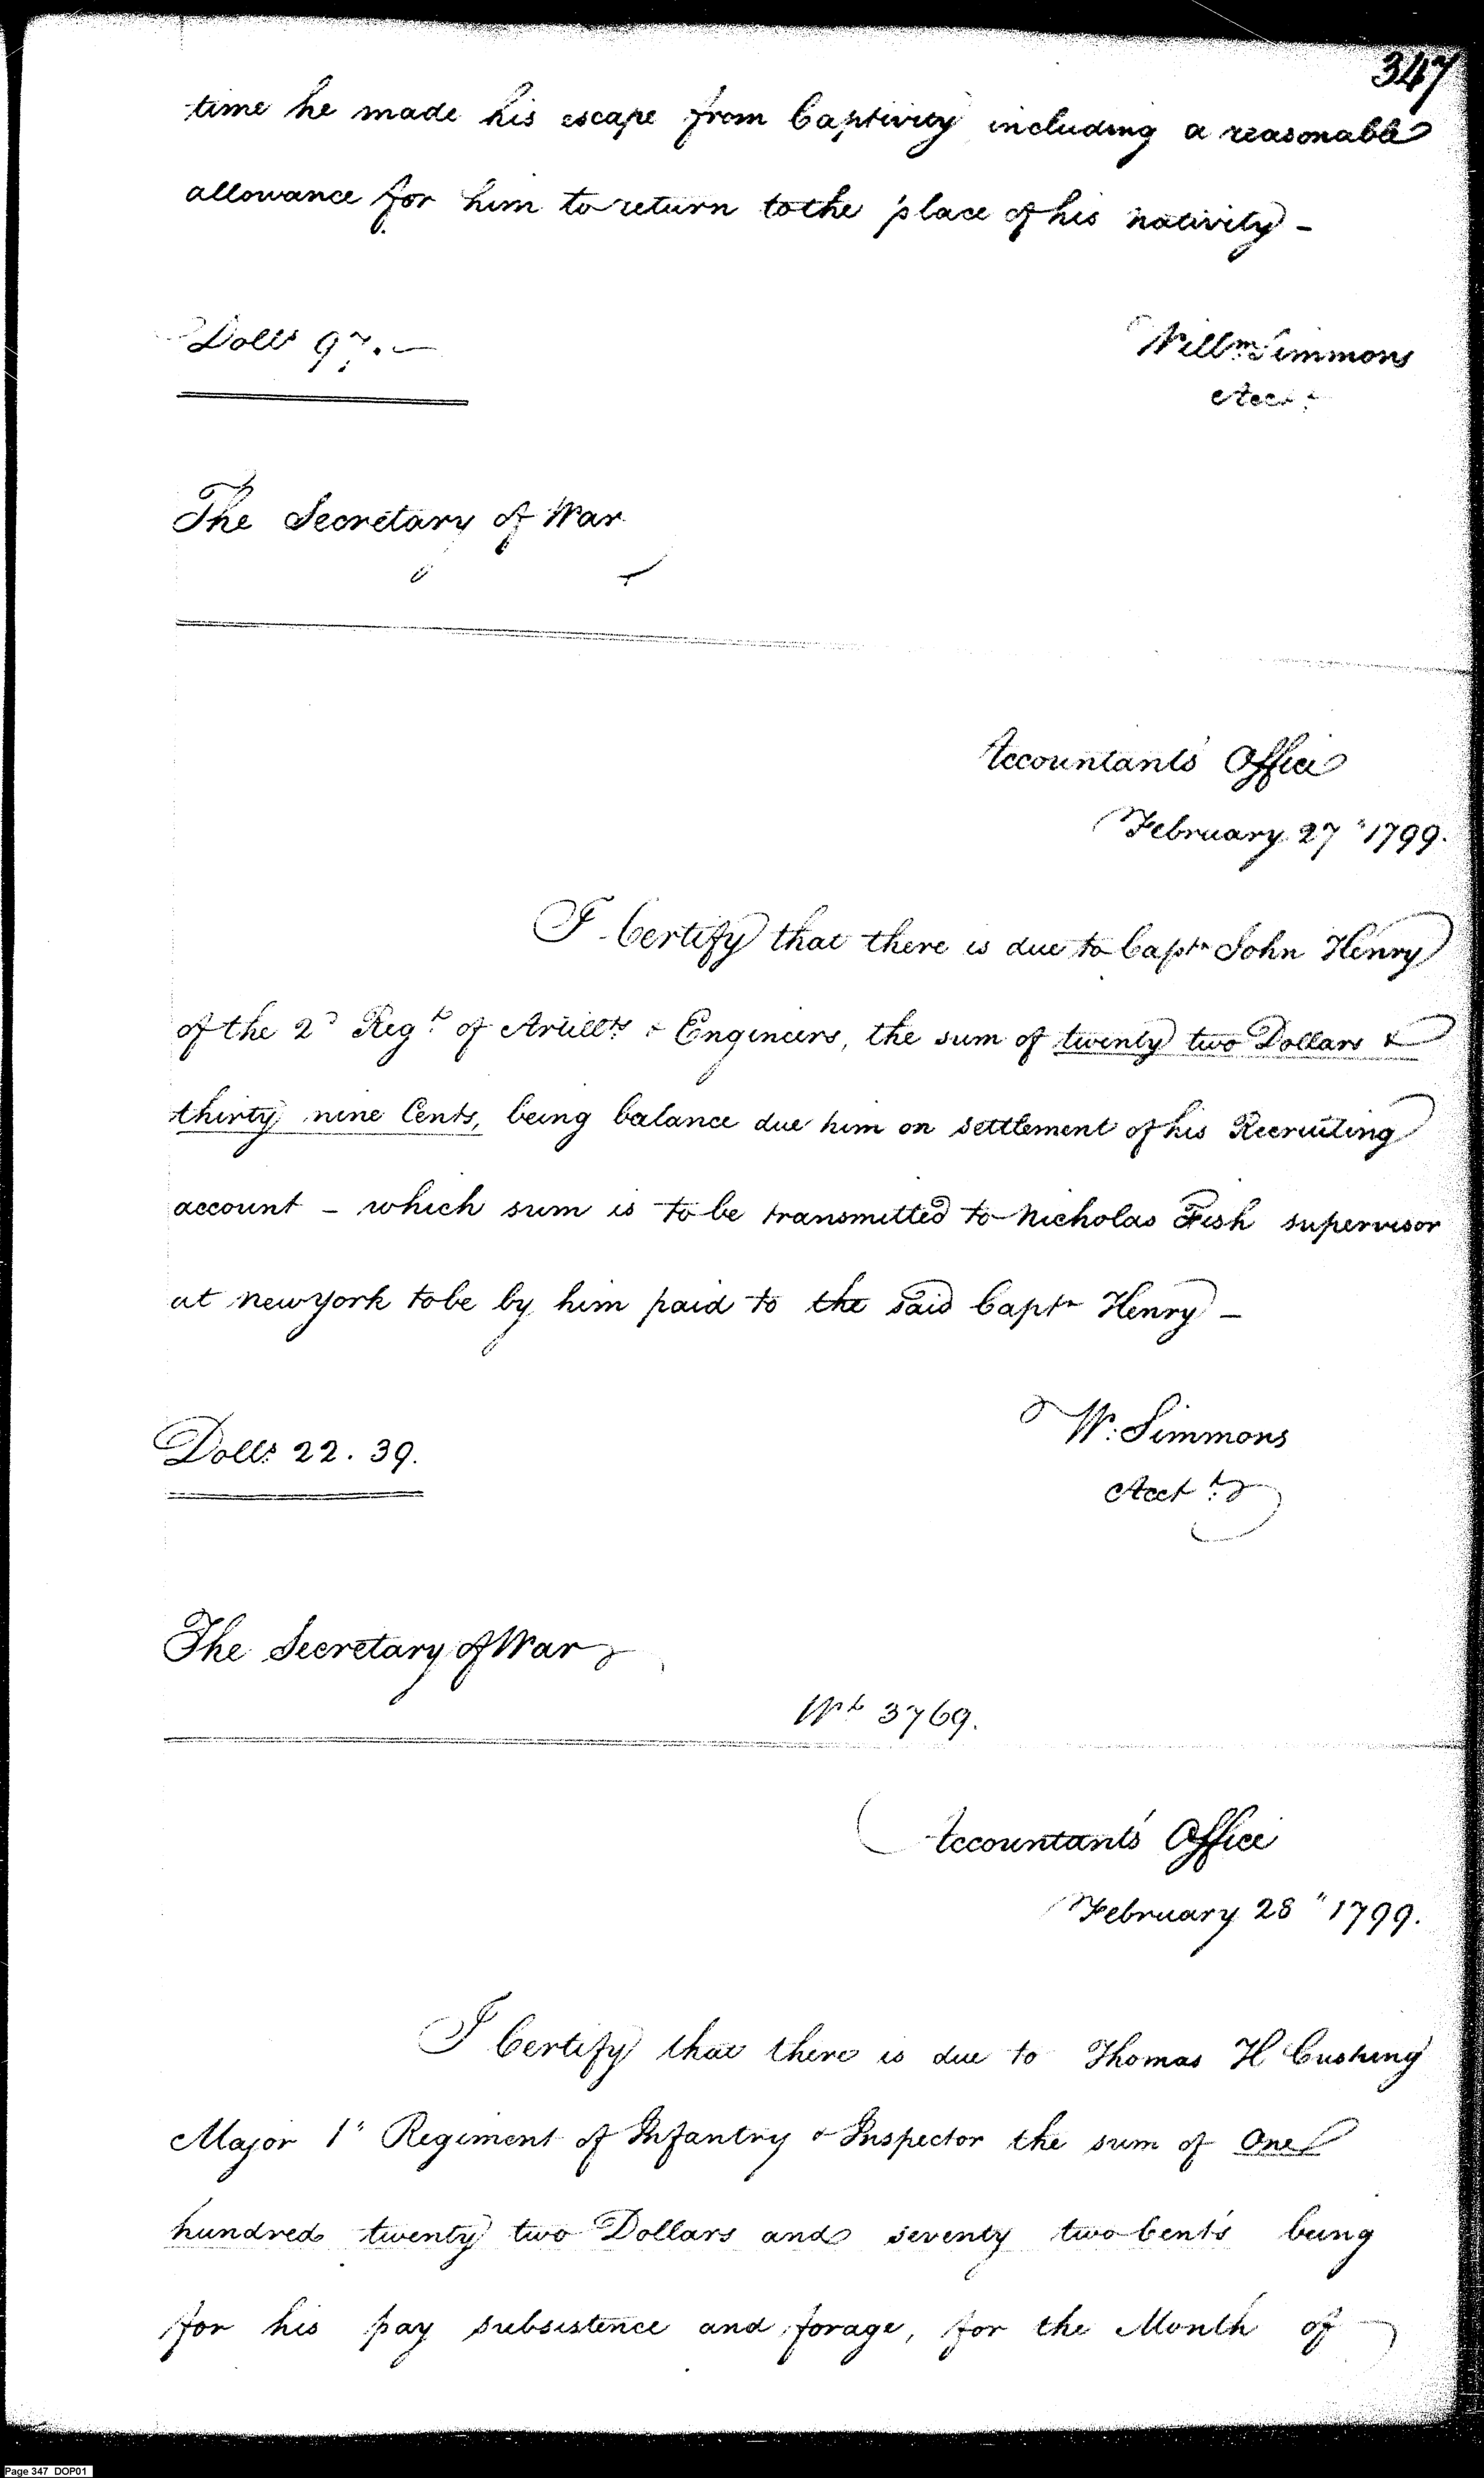 347
time he made his escape from Captivity including a reasonable
allowance for him to return to the place of his nativity -
Dolls 97. —
Willm Simmons
Acct.
The Secretary of War
Accountants Office
February 27" 1799.
I Certify that there is due to Captn John Henry
of the 2d Regt. of Artillts & Engineers, the sum of twenty two Dollars &
thirty nine Cents, being balance due him on settlement of his Recruiting
account - which sum is to be transmitted to Nicholas Fish supervisor
at new york to be by him paid to the said Captn Henry -
Dolls. 22. 39.
W. Simmons
Acct.
The Secretary of War
Wt 3769.
Accountant's Office
February 28" 1799.
I Certify that there is due to Thomas H Cushing
Major 1" Regiment of Infantry & Inspector the sum of One
hundred twenty two Dollars and seventy two Cents being
for his pay subsistence and forage, for the Month of
Page 347 DOP01